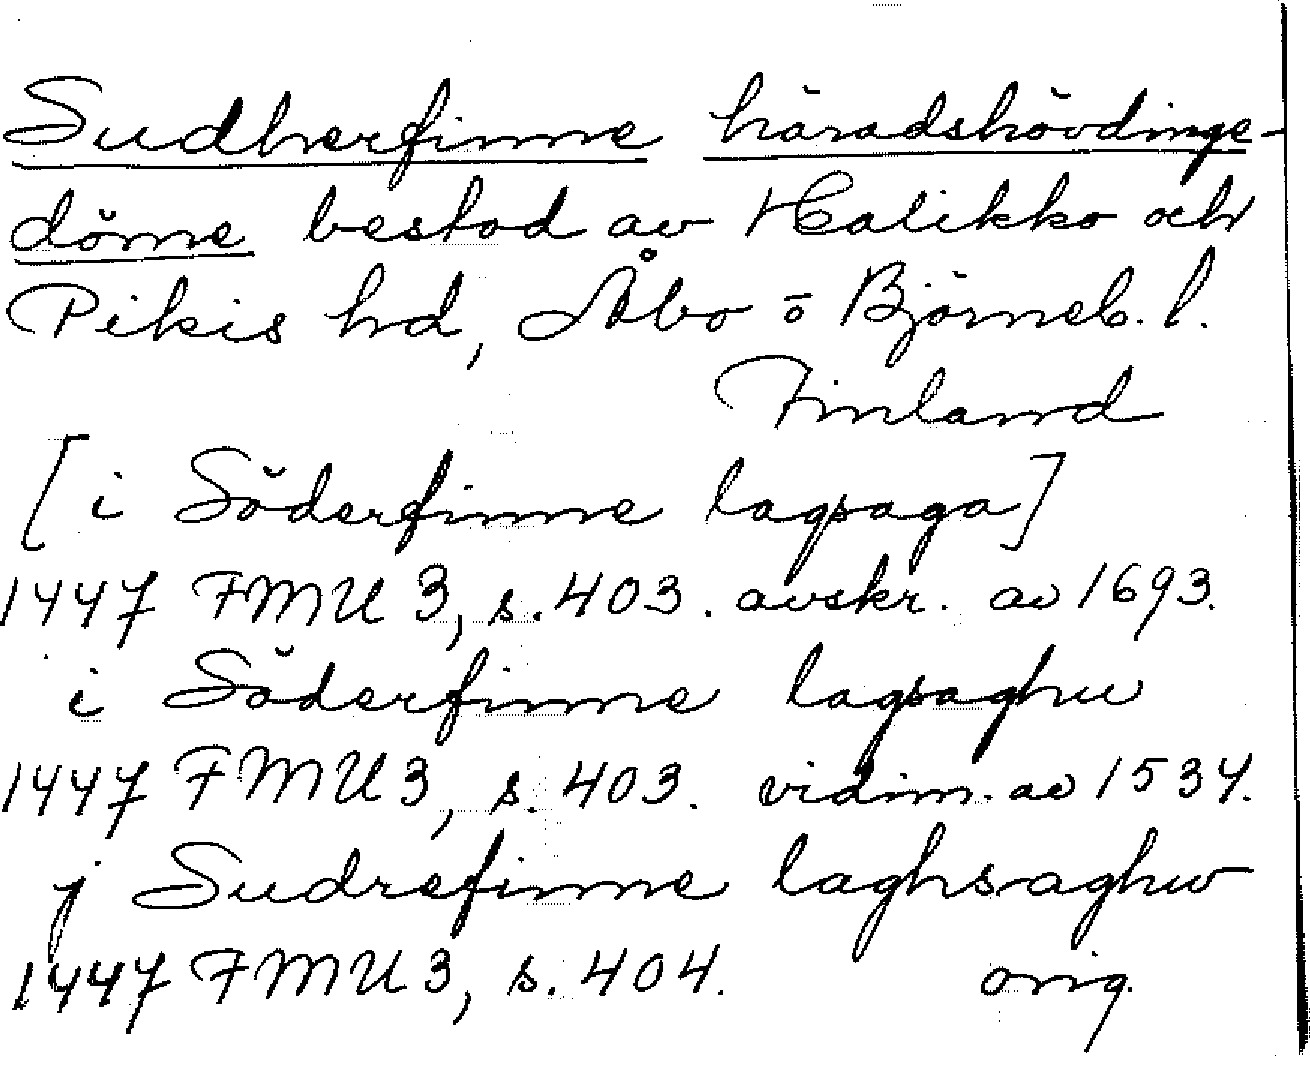 Sudherfinne häradshövdinge-
döme bestod av Halikko och
Pikis hd, Åbo o Björneb. l.
Finland
[i Söderfinne lagsaga]
1447 FMU 3, s. 403. avskr. av 1693.
i Söderfinne lagsaghu
1447 FMU 3, s. 403. vidim. av 1534.
j Sudrefinne laghsaghw
1447 FMU 3, s. 404. orig.